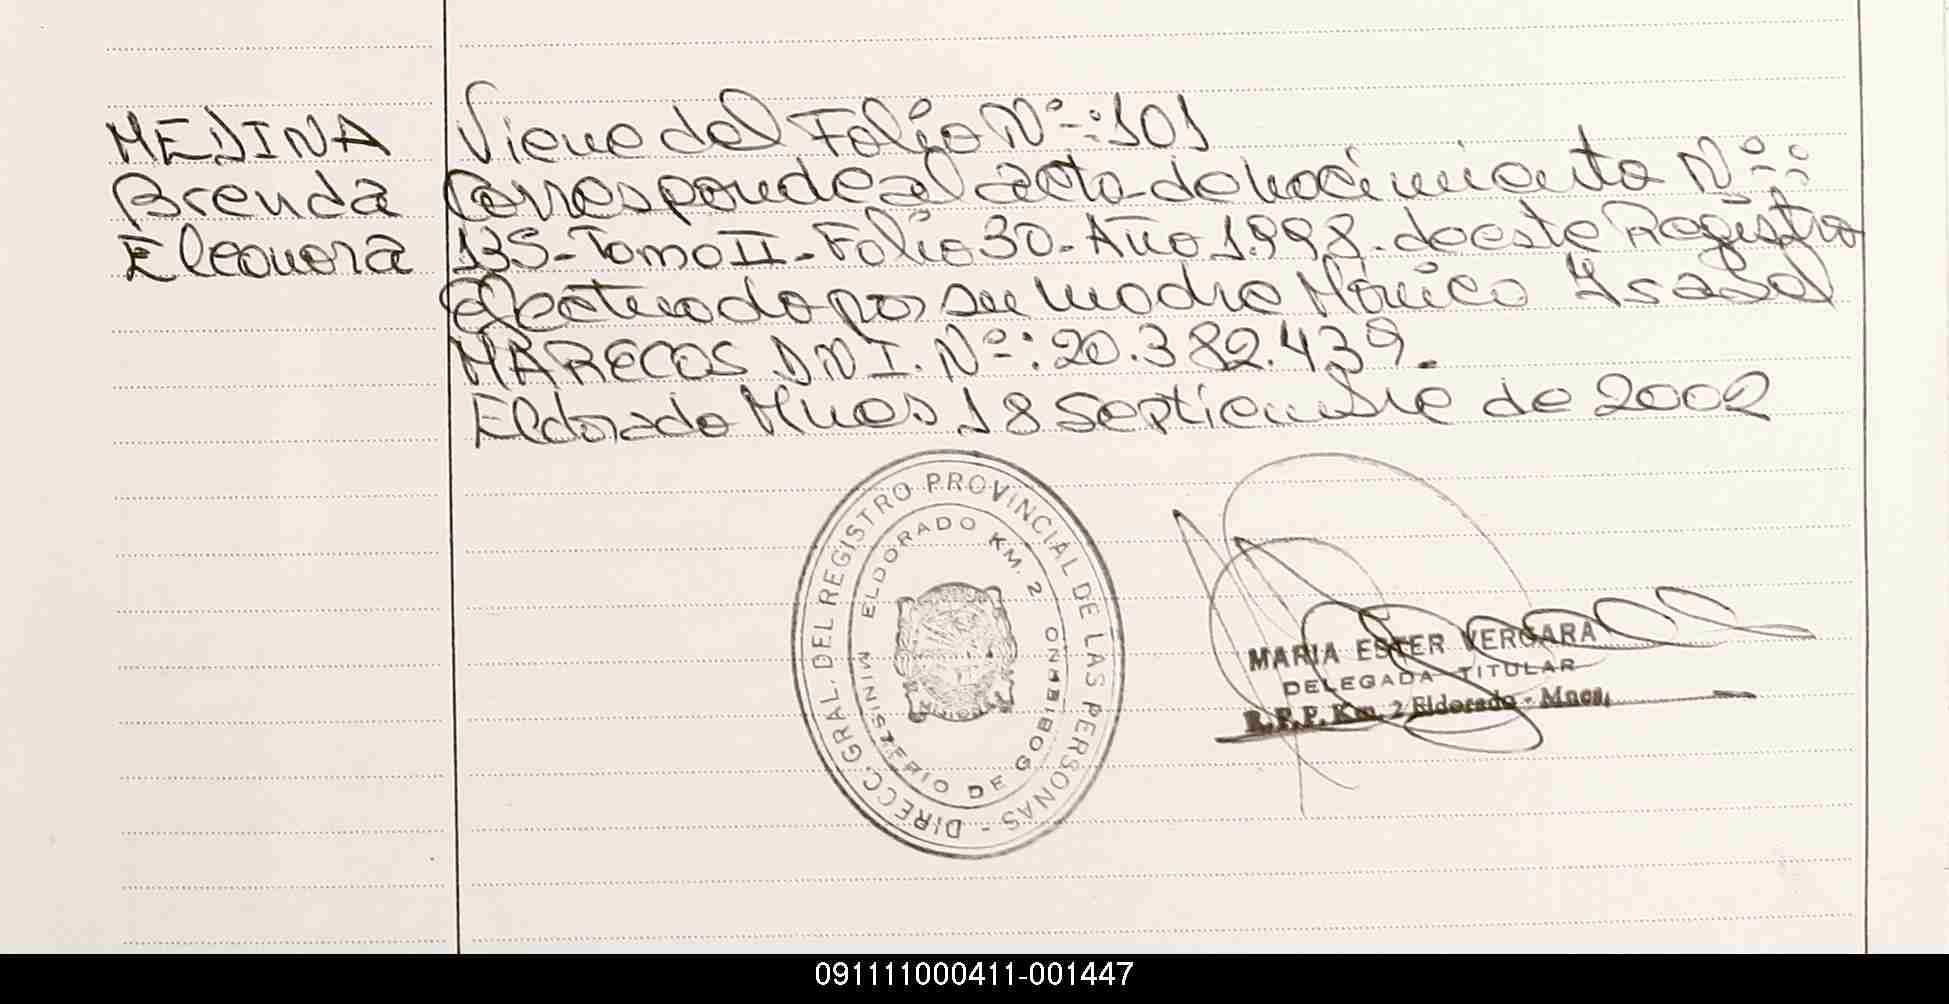 MEDINA
Brenda
Eleonora
Viene del Folio Nº-:101
Corresponde al acta de nacimiento Nº-:
135-Tomo II-Folio 30-Año 1.998-de este Registro
efectuado por su madre Mónica Isabel
MARECOS DNI. Nº-:20.382.439.
Eldorado Mnes, 18 Septiembre de 2002
DIRECC. GRAL. DEL REGISTRO PROVINCIAL DE LAS PERSONAS -
MINISTERIO DE GOBIERNO
ELDORADO KM. 2
MARIA ESTER VERGARA
DELEGADA TITULAR
R.P.P. Km. 2 Eldorado - Mnes.
091111000411-001447